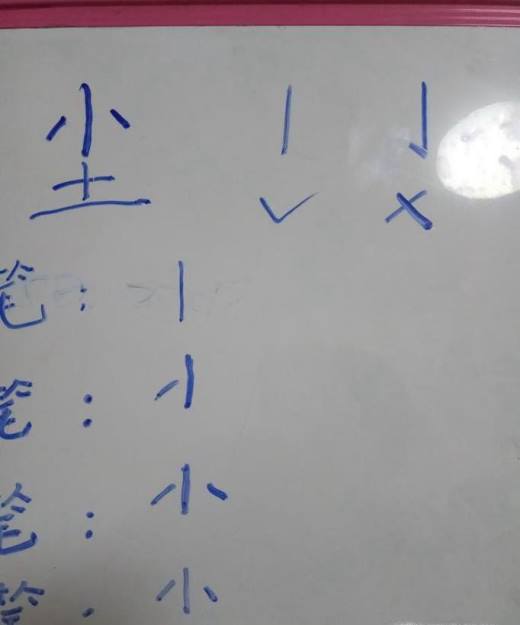 尘 丨 亅
✓ ×
笔：丨
笔：
笔：小
笔：小